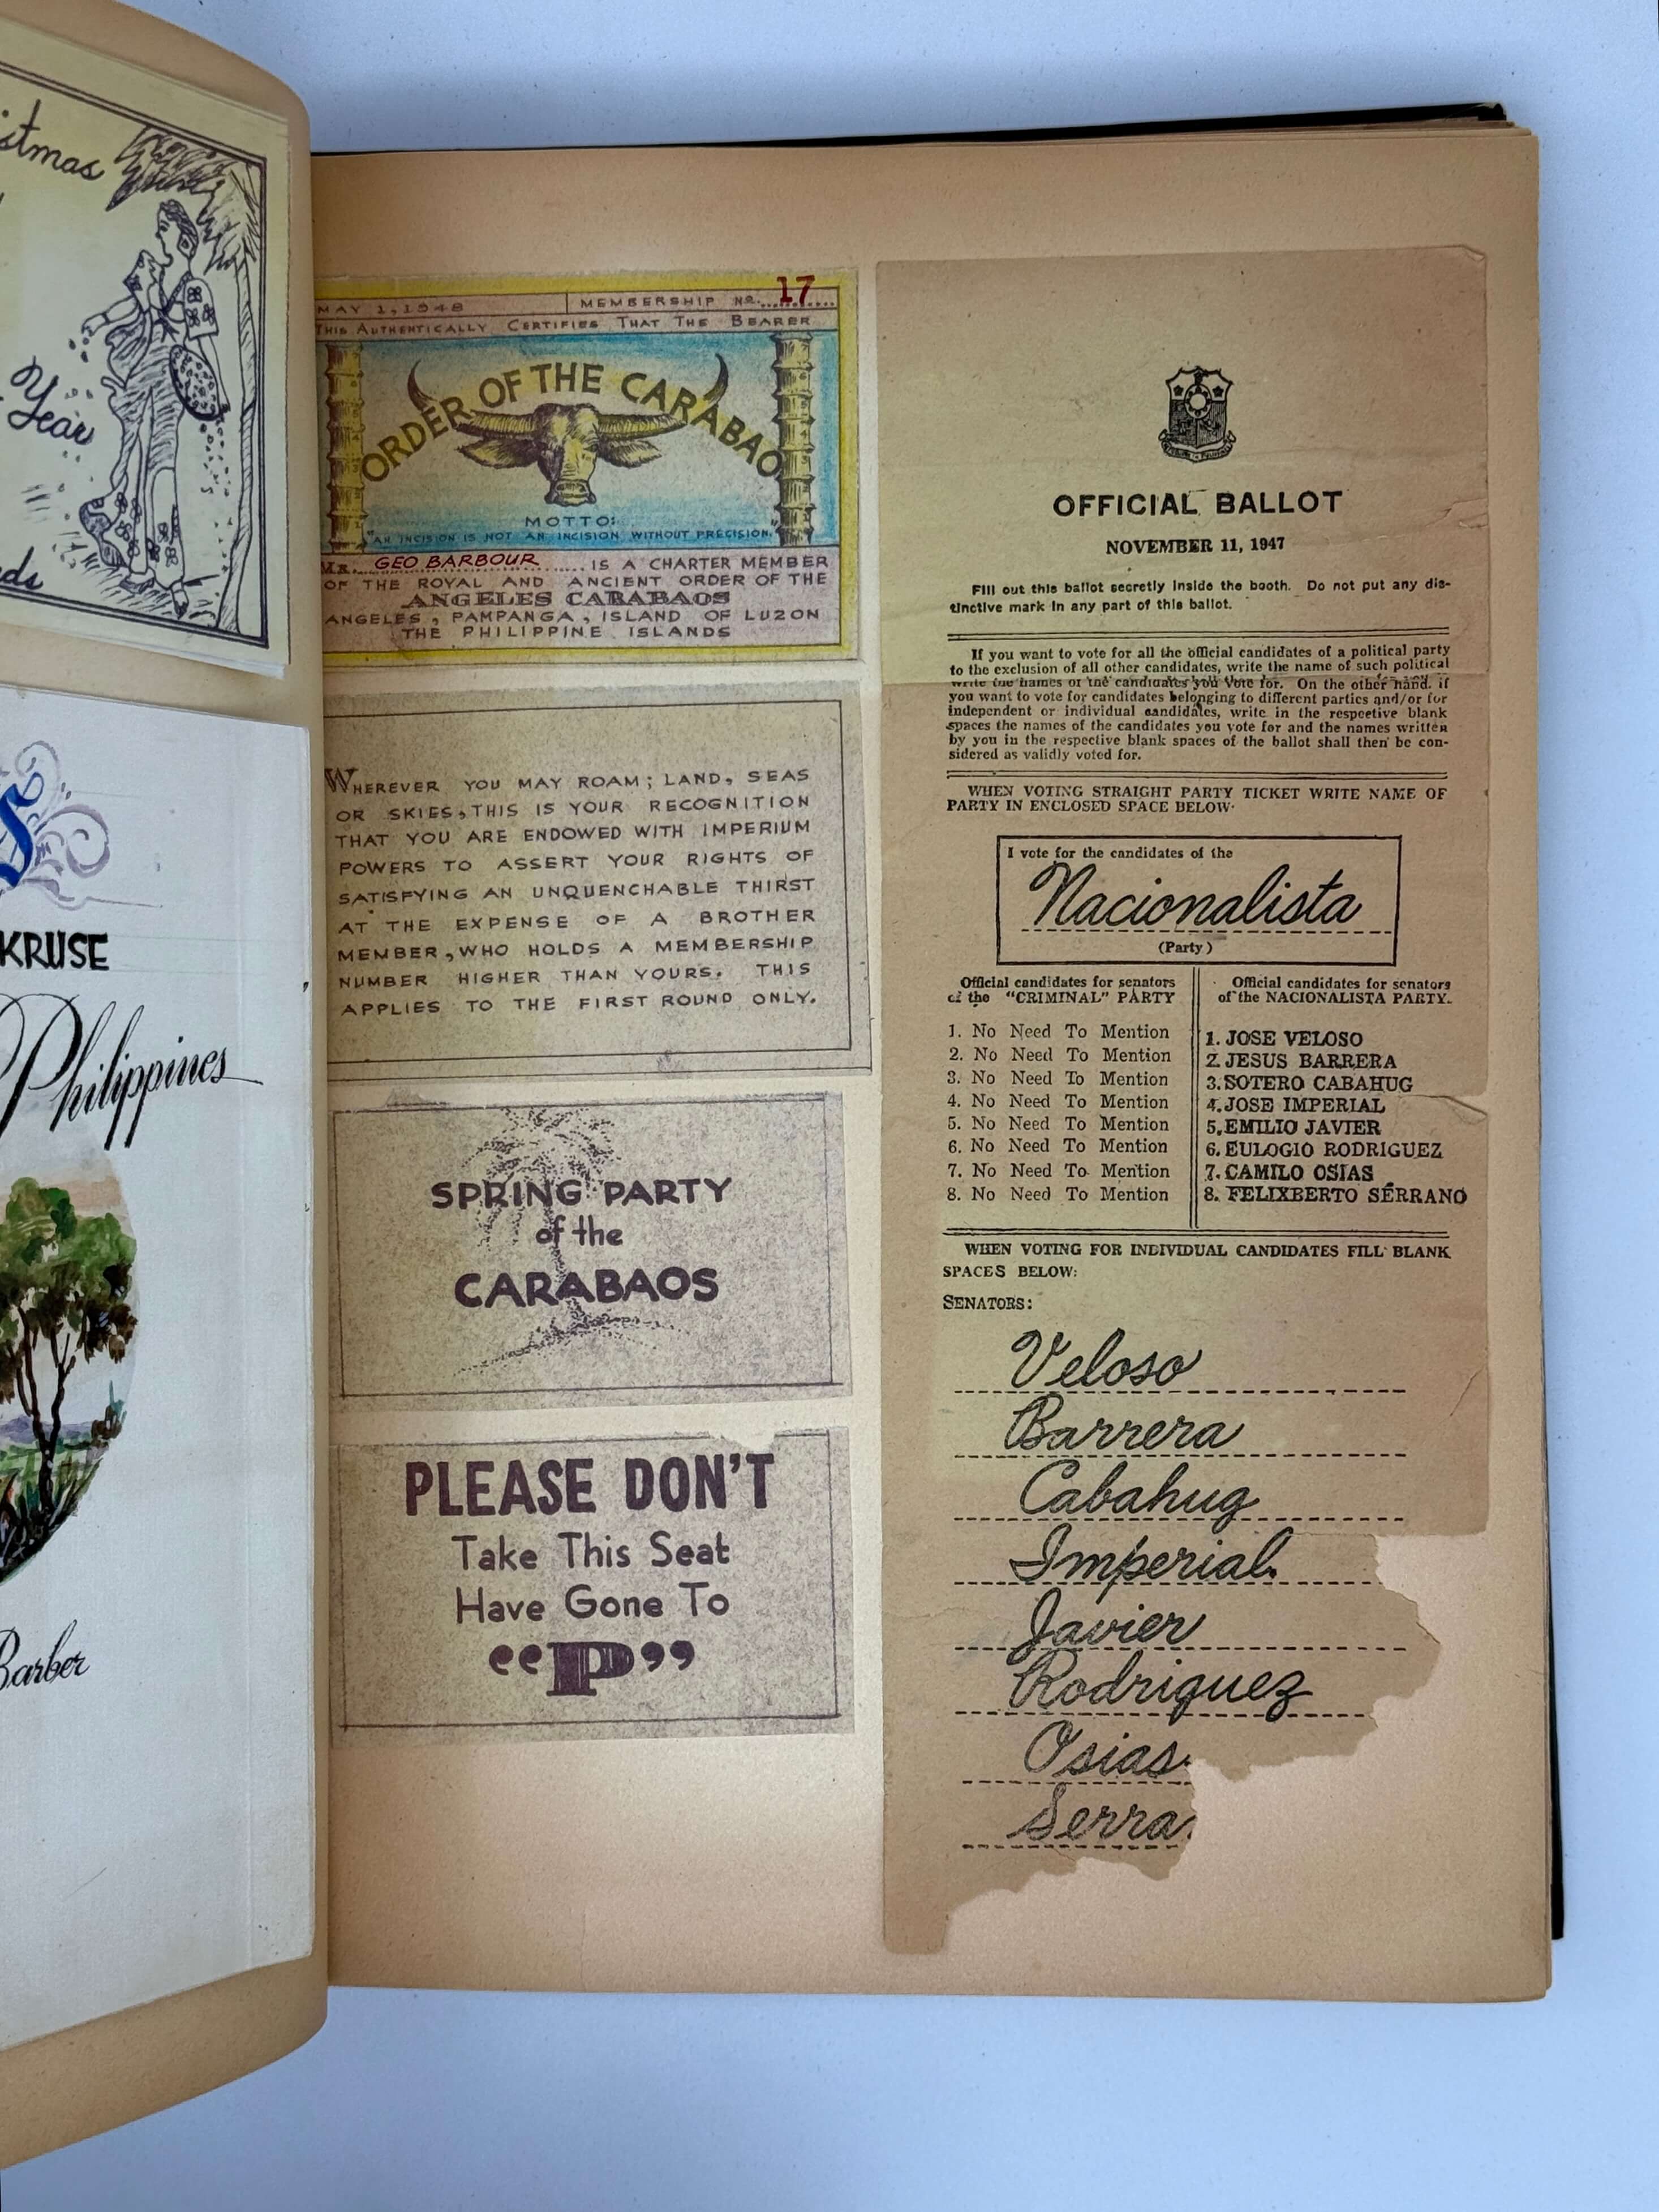 Year
KRUSE
Philippines
Barber
MAY 1, 1948
MEMBERSHIP NO. 17
THIS AUTHENTICALLY CERTIFIES THAT THE BEARER
ORDER OF THE CARABAO
MOTTO:
"AN INCISION IS NOT AN INCISION WITHOUT PRECISION."
MR. GEO BARBOUR IS A CHARTER MEMBER
OF THE ROYAL AND ANCIENT ORDER OF THE
ANGELES CARABAOS
ANGELES, PAMPANGA, ISLAND OF LUZON
THE PHILIPPINE ISLANDS
WHEREVER YOU MAY ROAM; LAND, SEAS
OR SKIES, THIS IS YOUR RECOGNITION
THAT YOU ARE ENDOWED WITH IMPERIUM
POWERS TO ASSERT YOUR RIGHTS OF
SATISFYING AN UNQUENCHABLE THIRST
AT THE EXPENSE OF A BROTHER
MEMBER, WHO HOLDS A MEMBERSHIP
NUMBER HIGHER THAN YOURS. THIS
APPLIES TO THE FIRST ROUND ONLY.
SPRING PARTY
of the
CARABAOS
PLEASE DON'T
Take This Seat
Have Gone To
"P"
OFFICIAL BALLOT
NOVEMBER 11, 1947
Fill out this ballot secretly inside the booth. Do not put any dis-
tinctive mark in any part of this ballot.
If you want to vote for all the official candidates of a political party
to the exclusion of all other candidates, write the name of such political
write the names of the candidates you vote for. On the other hand, if
you want to vote for candidates belonging to different parties and/or for
independent or individual candidates, write in the respective blank
spaces the names of the candidates you vote for and the names written
by you in the respective blank spaces of the ballot shall then be con-
sidered as validly voted for.
WHEN VOTING STRAIGHT PARTY TICKET WRITE NAME OF
PARTY IN ENCLOSED SPACE BELOW.
I vote for the candidates of the
Nacionalista
(Party)
Official candidates for senators
of the "CRIMINAL" PARTY
1. No Need To Mention
2. No Need To Mention
3. No Need To Mention
4. No Need To Mention
5. No Need To Mention
6. No Need To Mention
7. No Need To Mention
8. No Need To Mention
Official candidates for senators
of the NACIONALISTA PARTY.
1. JOSE VELOSO
2. JESUS BARRERA
3. SOTERO CABAHUG
4. JOSE IMPERIAL
5. EMILIO JAVIER
6. EULOGIO RODRIGUEZ
7. CAMILO OSIAS
8. FELIXBERTO SERRANO
WHEN VOTING FOR INDIVIDUAL CANDIDATES FILL BLANK
SPACES BELOW:
SENATORS:
Veloso
Barrera
Cabahug
Imperial
Javier
Rodriguez
Osias
Serra